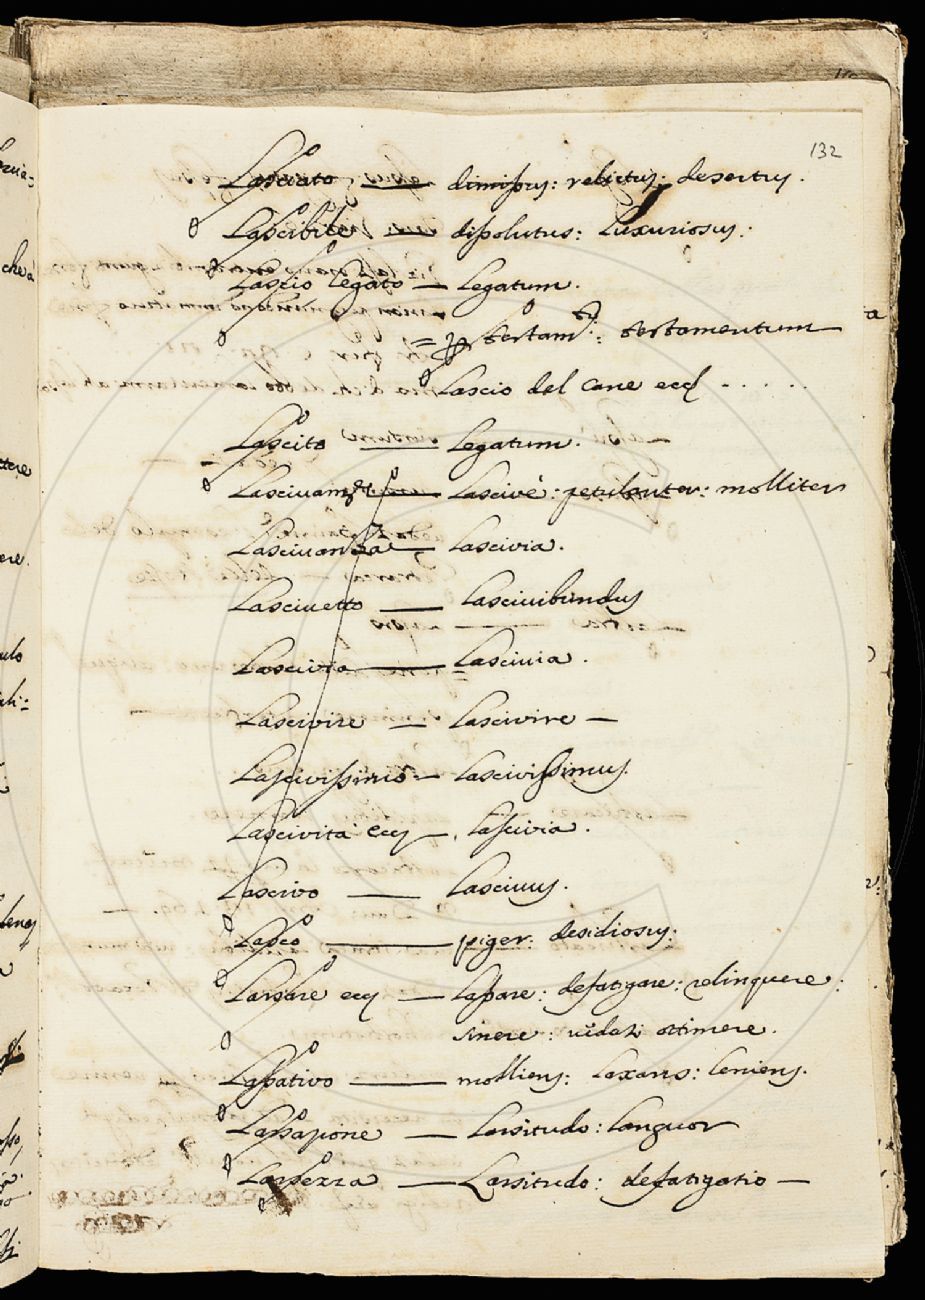 132
Lasciato — dimissus: relictus: desertus.
Lascibile — dissolutus: Luxuriosus:
Lascio legato — Legatum.
= testam.to: testamentum
Lascio del Cane eccs - . . . .
Lascito — Legatum.
Lascivam.te — Lascivè: petulanter: molliter
Lascivanza — Lascivia.
Lascivetto — Lascivibundus
Lascivia — Lascivia.
Lascivire — Lascivire —
Lascivissimo — Lascivissimus.
Lascività eccs — Lascivia.
Lascivo — Lascivus.
Lasco — piger: desidiosus:
Lassare eccs — Lassare: defatigare: relinquere:
sinere: omittere.
Lassativo — molliens: Laxans: Leniens.
Lassazione — Lassitudo: Languor
Lassezza — Lassitudo: defatigatio —